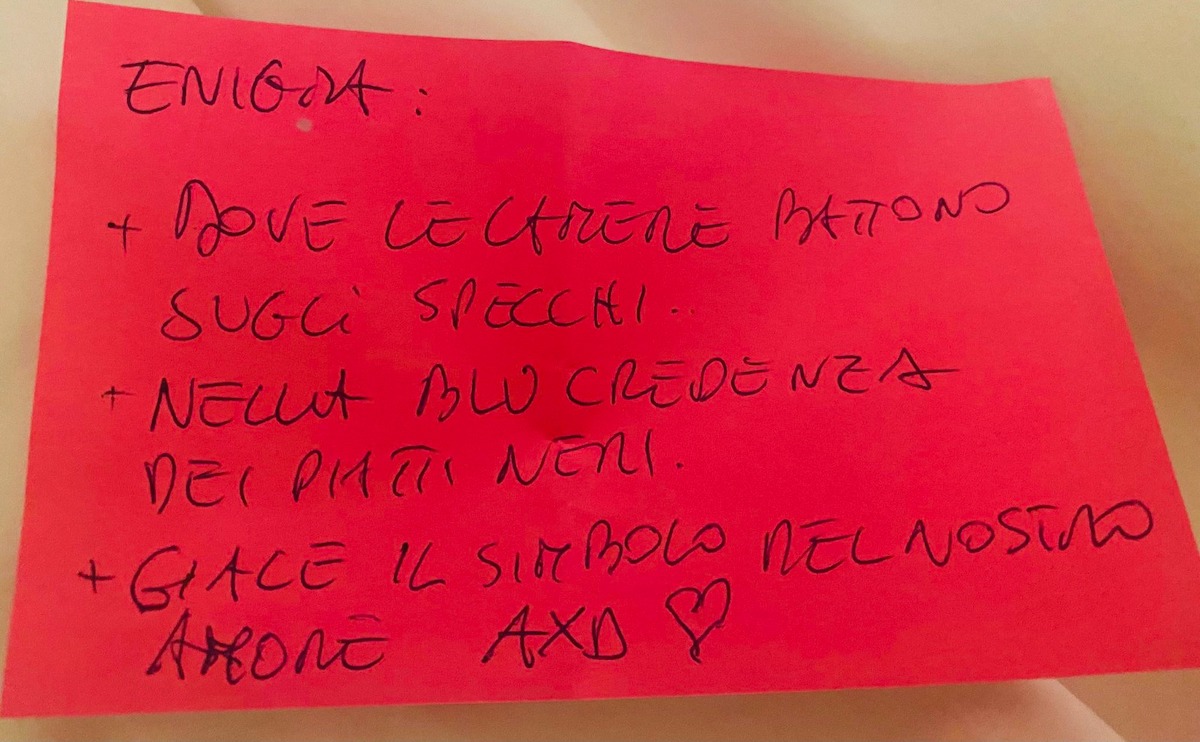 ENIGMA:
+ DOVE LE CAMERE BATTONO
SUGLI SPECCHI..
+ NELLA BLU CREDENZA
DEI PIATTI NERI.
+ GIACE IL SIMBOLO DEL NOSTRO
AMORE AXD ♡